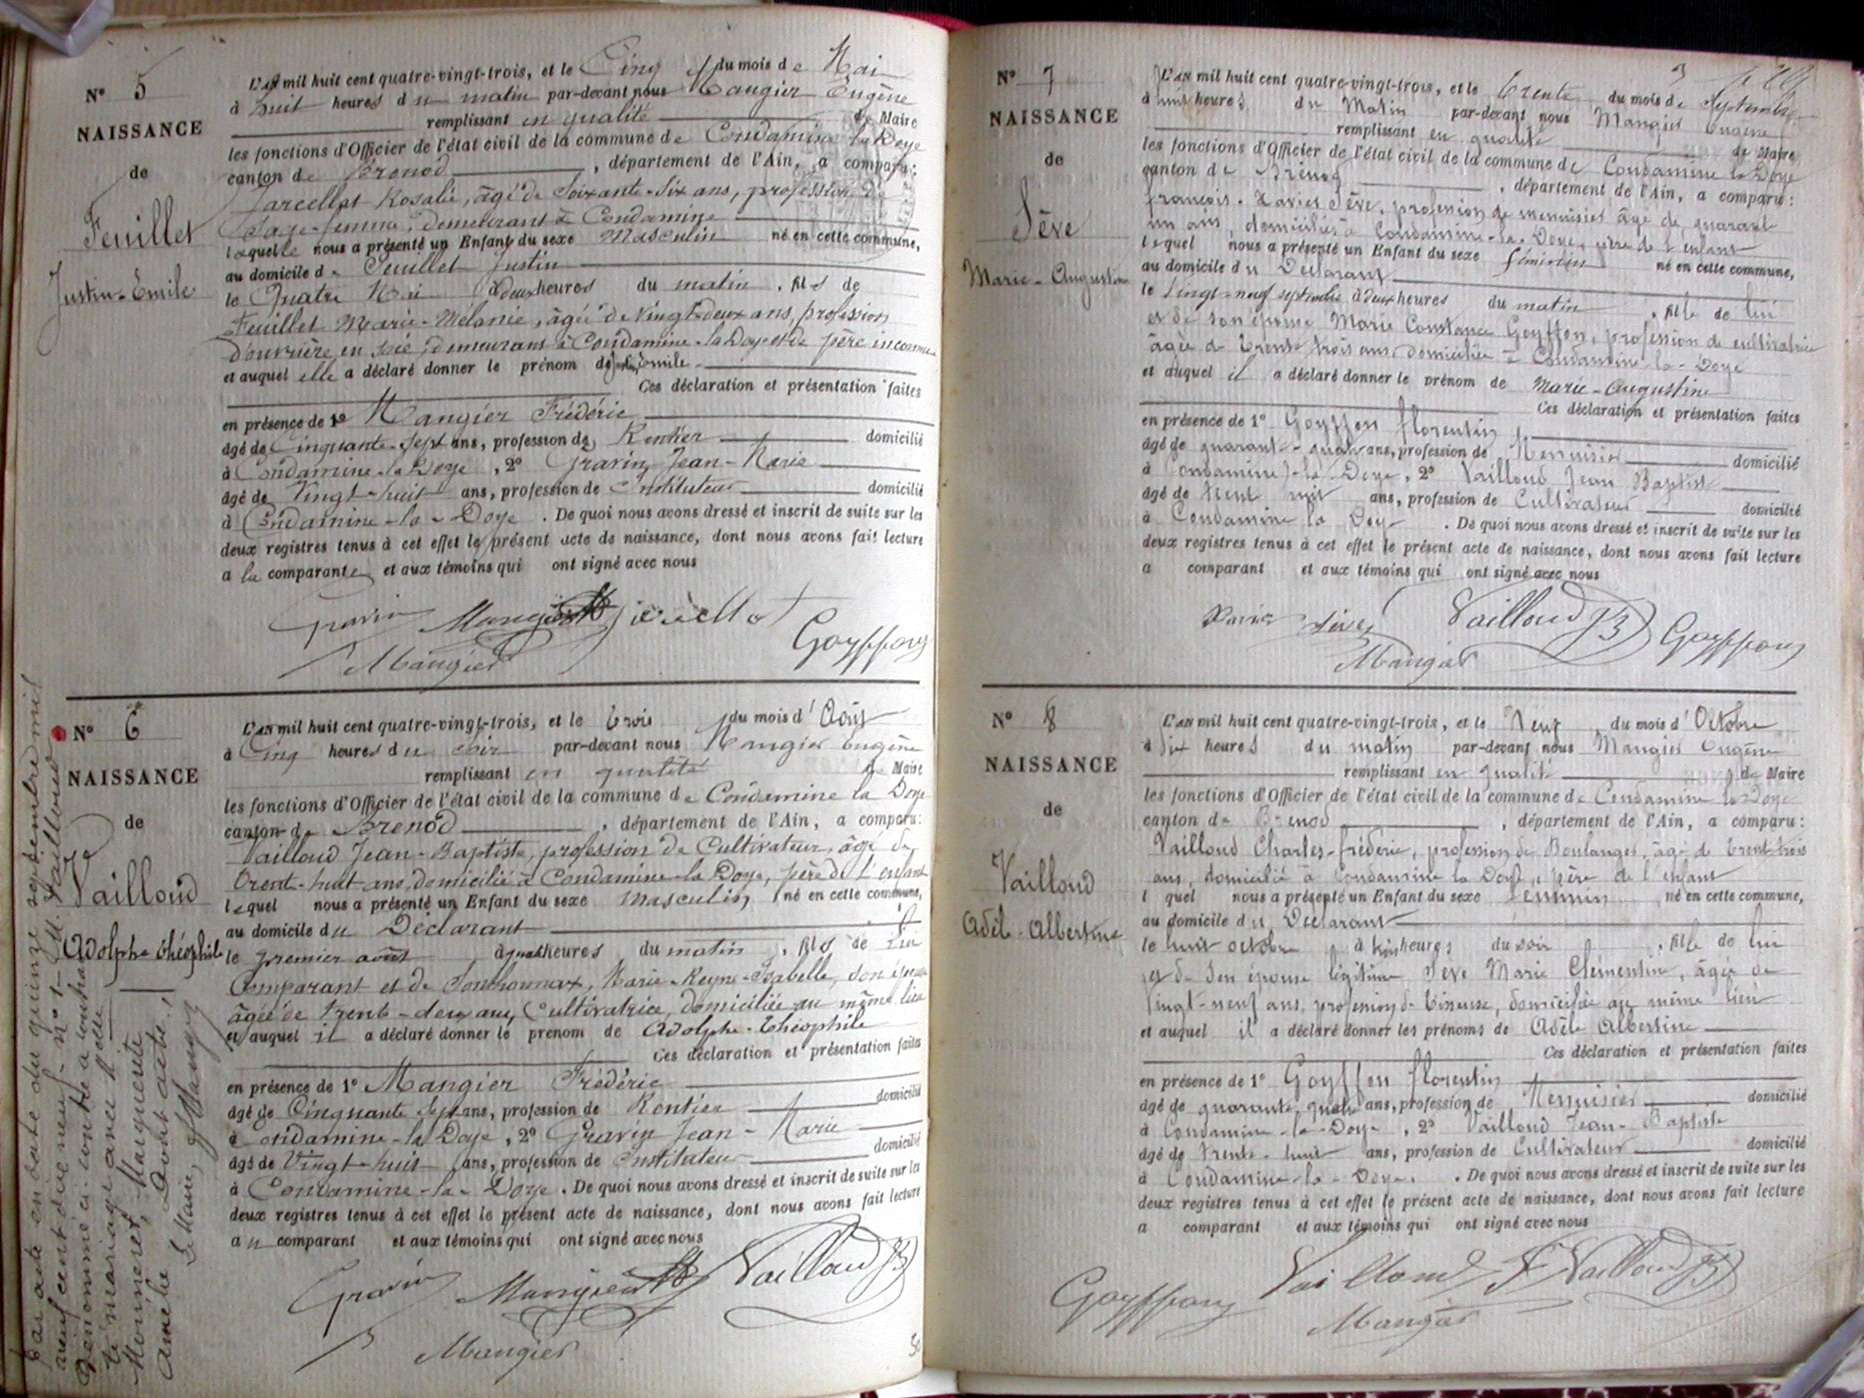 N° 5
NAISSANCE
de
Feuillet
Justin-Emile
L'AN mil huit cent quatre-vingt-trois, et le Cinq du mois de Mai
à huit heures du matin par-devant nous Mangier Eugène
remplissant en qualité de Maire
les fonctions d'Officier de l'état civil de la commune de Condamine la Doye
canton de Brénod, département de l'Ain, a comparu:
Rosalie, âgé de Soixante-Six ans, profession de
Sage-femme, demeurant à Condamine
laquelle nous a présenté un Enfant du sexe Masculin né en cette commune,
au domicile de Feuillet Justin
le Quatre Mai à deux heures du matin, fils de
Feuillet Marie-Mélanie, âgée de Vingt-deux ans, profession
d'ouvrière en soie, demeurant à Condamine-la-Doye et de père inconnu
et auquel elle a déclaré donner le prénom de Justin Emile
Ces déclaration et présentation faites
en présence de 1° Mangier Frédéric
âgé de Cinquante-Sept ans, profession de Rentier domicilié
à Condamine-la-Doye, 2° Gravin Jean-Marie
âgé de Vingt-huit ans, profession de Instituteur domicilié
à Condamine-la-Doye. De quoi nous avons dressé et inscrit de suite sur les
deux registres tenus à cet effet le présent acte de naissance, dont nous avons fait lecture
a la comparante et aux témoins qui ont signé avec nous
Gravin Mangier
Mangier Goyffon
N° 6
NAISSANCE
de
Vailloud
Adolphe Théophile
L'AN mil huit cent quatre-vingt-trois, et le trois du mois d'Août
à Cinq heures du soir par-devant nous Mangier Eugène
remplissant en qualité de Maire
les fonctions d'Officier de l'état civil de la commune de Condamine la Doye
canton de Brénod, département de l'Ain, a comparu:
Vailloud Jean-Baptiste, profession de Cultivateur, âgé de
trent-huit ans, domicilié à Condamine-la Doye, père de l'enfant
lequel nous a présenté un Enfant du sexe Masculin né en cette commune,
au domicile du Déclarant
le premier août à heures du matin, fils de lui
Comparant et de Marie-Reyne-Isabelle, son épouse
âgée de trente-deux ans, Cultivatrice, domiciliée au même lieu
et auquel il a déclaré donner le prénom de Adolphe-Théophile
Ces déclaration et présentation faites
en présence de 1° Mangier Frédéric
âgé de Cinquante Sept ans, profession de Rentier domicilié
à Condamine-la Doye, 2° Gravin Jean-Marie
âgé de Vingt-huit ans, profession de Instituteur domicilié
à Condamine-la-Doye. De quoi nous avons dressé et inscrit de suite sur les
deux registres tenus à cet effet le présent acte de naissance, dont nous avons fait lecture
au comparant et aux témoins qui ont signé avec nous
Gravin Mangier Vailloud JB
Mangier
Par acte en date du quinze septembre mil
neuf cent dix neuf - n° 1 - M. Vailloud
dénommé ci-contre a contrac
té mariage avec Melle
Monneret, Marguerite
Amélie Dont acte,
Le Maire,
N° 7
NAISSANCE
de
Sève
Marie-Augustine
L'AN mil huit cent quatre-vingt-trois, et le trente du mois de Septembre
à huit heures du Matin par-devant nous Mangier Eugène
remplissant en qualité de Maire
les fonctions d'Officier de l'état civil de la commune de Condamine la Doye
canton de Brénod, département de l'Ain, a comparu:
françois-Xavier Sève, profession de menuisier âgé de quarant
un ans, domicilié à Condamine-la-Doye, père de l'enfant
lequel nous a présenté un Enfant du sexe féminin né en cette commune,
au domicile du Déclarant
le vingt-neuf septembre à deux heures du matin, fille de lui
et de son épouse Marie Constance Goyffon, profession de cultivatrice
âgée de trente trois ans, domiciliée à Condamine-la-Doye
et auquel il a déclaré donner le prénom de Marie-Augustine
Ces déclaration et présentation faites
en présence de 1° Goyffon florentin
âgé de quarant-quatre ans, profession de Menuisier domicilié
à Condamine-la-Doye, 2° Vailloud Jean Baptiste
âgé de trent huit ans, profession de Cultivateur domicilié
à Condamine la Doye. De quoi nous avons dressé et inscrit de suite sur les
deux registres tenus à cet effet le présent acte de naissance, dont nous avons fait lecture
a comparant et aux témoins qui ont signé avec nous
Xavier Sève Vailloud JB Goyffon
Mangier
N° 8
NAISSANCE
de
Vailloud
Adèle-Albertine
L'AN mil huit cent quatre-vingt-trois, et le Neuf du mois d'Octobre
à six heures du matin par-devant nous Mangier Eugène
remplissant en qualité de Maire
les fonctions d'Officier de l'état civil de la commune de Condamine la Doye
canton de Brenod, département de l'Ain, a comparu:
Vailloud Charles-frédéric, profession de Boulanger, âgé de trent-trois
ans, domicilié à Condamine la Doye, père de l'enfant
l quel nous a présenté un Enfant du sexe féminin né en cette commune,
au domicile du Déclarant
le huit octobre à heures du soir, fille de lui
et de son épouse légitime Sève Marie Clémentine, âgée de
vingt-neuf ans, profession de tisseuse, domiciliée au même lieu
et auquel il a déclaré donner les prénoms de Adèle Albertine
Ces déclaration et présentation faites
en présence de 1° Goyffon florentin
âgé de quarante quatre ans, profession de Menuisier domicilié
à Condamine-la-Doye, 2° Vailloud Jean-Baptiste
âgé de trente-huit ans, profession de Cultivateur domicilié
à Condamine-la-Doye. De quoi nous avons dressé et inscrit de suite sur les
deux registres tenus à cet effet le présent acte de naissance, dont nous avons fait lecture
a comparant et aux témoins qui ont signé avec nous
Goyffon Vailloud F Vailloud JB
Mangier